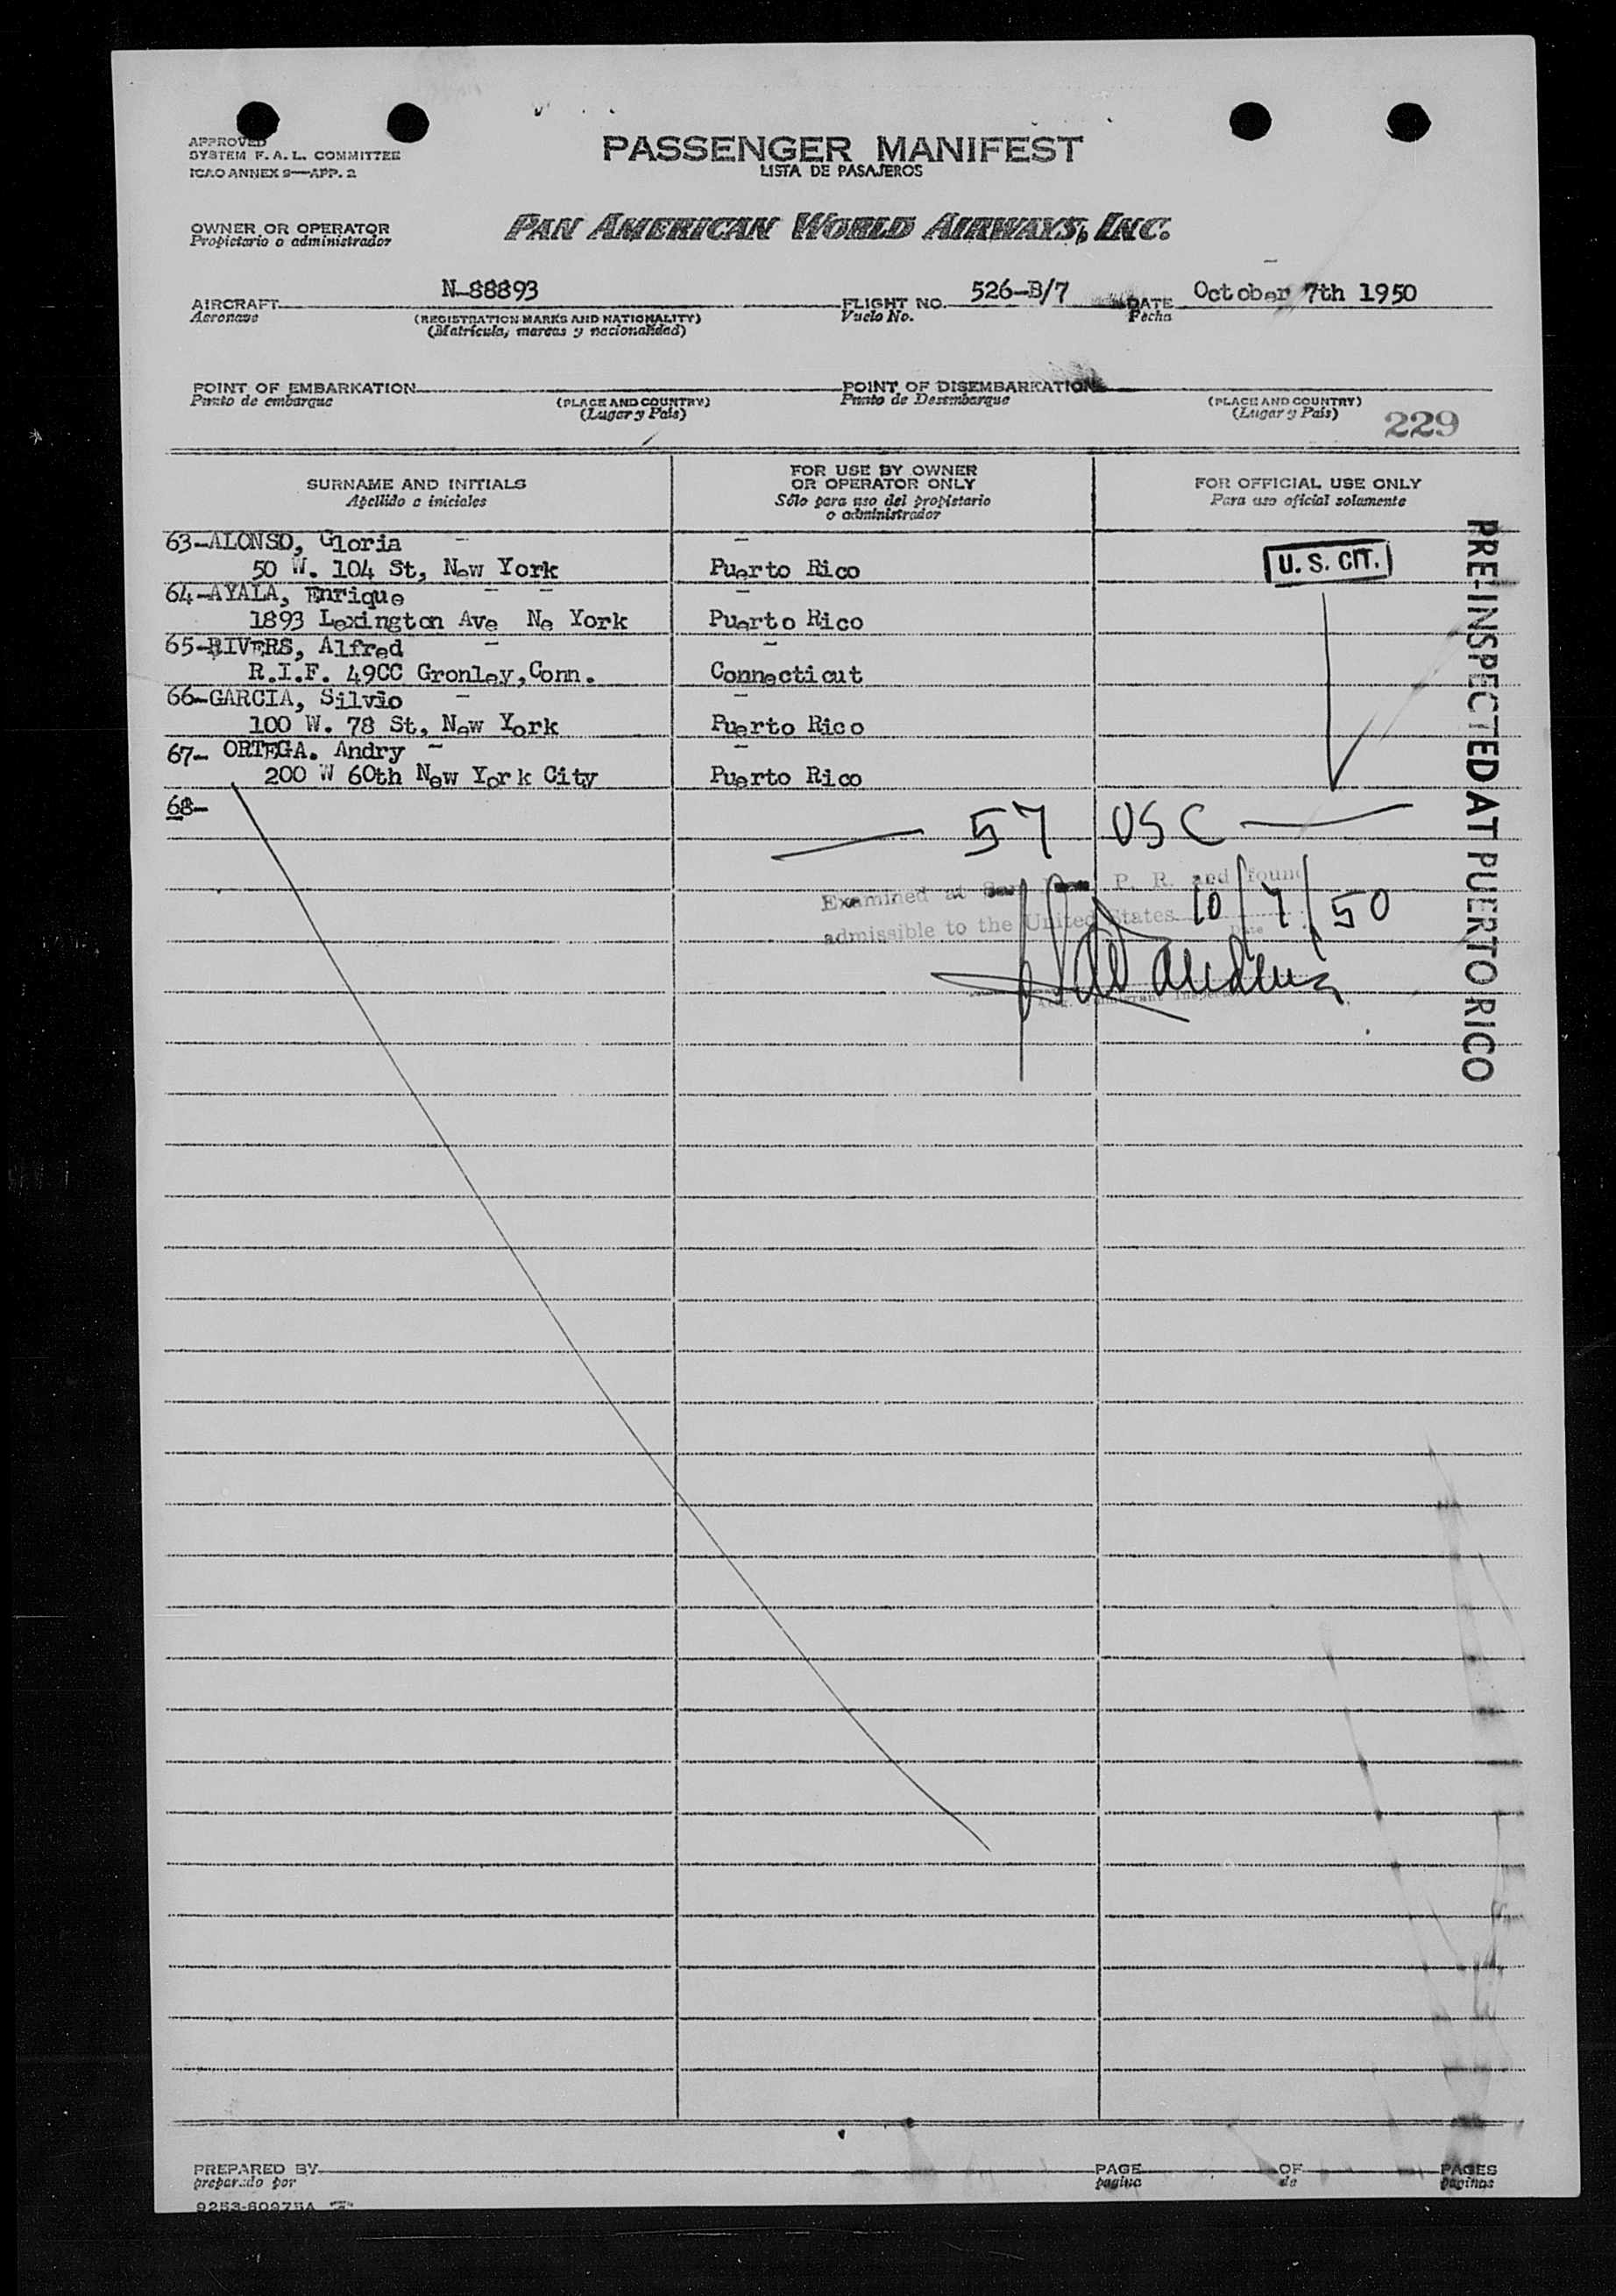 APPROVED
SYSTEM F. A. L. COMMITTEE
ICAO ANNEX 9—APP. 2
PASSENGER MANIFEST
LISTA DE PASAJEROS
OWNER OR OPERATOR
Propietario o administrador
PAN AMERICAN WORLD AIRWAYS, INC.
AIRCRAFT N-88893 FLIGHT NO. 526-B/7 DATE October 7th 1950
Aeronave (REGISTRATION MARKS AND NATIONALITY) Vuelo No. Fecha
(Matrícula, marcas y nacionalidad)
POINT OF EMBARKATION POINT OF DISEMBARKATION
Punto de embarque (PLACE AND COUNTRY) Punto de Desembarque (PLACE AND COUNTRY)
(Lugar y País) (Lugar y País)
229
SURNAME AND INITIALS
Apellido e iniciales
FOR USE BY OWNER
OR OPERATOR ONLY
Sólo para uso del propietario
o administrador
FOR OFFICIAL USE ONLY
Para uso oficial solamente
63-ALONSO, Gloria
50 W. 104 St, New York Puerto Rico U. S. CIT.
64-AYALA, Enrique
1893 Lexington Ave Ne York Puerto Rico
65-RIVERS, Alfred
R.I.F. 49CC Gronley,Conn. Connecticut
66-GARCIA, Silvio
100 W. 78 St, New York Puerto Rico
67- ORTEGA. Andry
200 W 60th New York City Puerto Rico
68-
— 57 USC —
Examined at San P. R. and found
admissible to the United States 10/7/50
Date
Immigrant Inspector
PRE-INSPECTED AT PUERTO RICO
PREPARED BY PAGE OF PAGES
preparado por pagina de paginas
9253-60975A